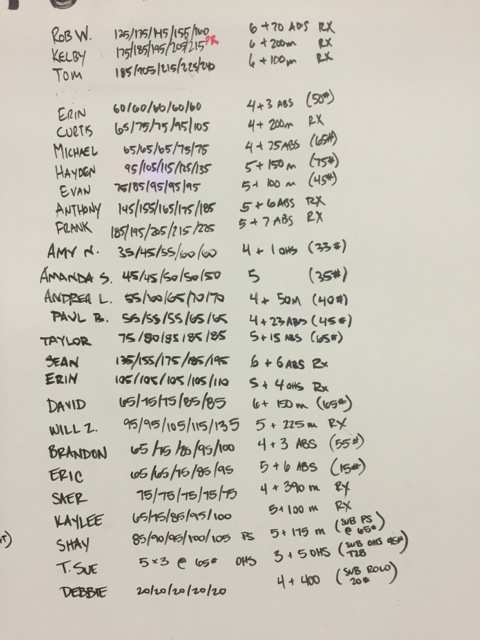 ROB W. 125/135/145/155/160 6+20 ABS RX
KELBY 175/185/195/205/215 PR 6+200m RX
TOM 185/205/215/225/240 6+100m RX
ERIN 60/60/60/60/60 4+3 ABS (50#)
CURTIS 65/75/75/95/105 4+200m RX
MICHAEL 65/65/65/75/75 4+25ABS (65#)
HAYDEN 95/105/115/125/135 5+150 m (75#)
EVAN 75/85/95/95/95 5+100 m (45#)
ANTHONY 145/155/165/175/185 5+6ABS RX
FRANK 185/195/205/215/225 5+7 ABS RX
AMY N. 35/45/55/60/60 4+1 OHS (33#)
AMANDA S. 45/45/50/50/50 5 (35#)
ANDREA L. 55/60/65/70/70 4+50M (40#)
PAUL B. 55/55/55/65/65 4+23ABS (45#)
TAYLOR 75/80/85/85/85 5+15 ABS (65#)
SEAN 135/155/175/185/195 6+6ABS Rx
ERIN 105/105/105/105/110 5+4OHS Rx
DAVID 65/75/75/85/85 6+150 m (65#)
WILL Z. 95/95/105/115/135 5+225 m RX
BRANDON 65/75/80/95/100 4+3 ABS (55#)
ERIC 65/65/75/85/95 5+6 ABS (15#)
SAER 75/75/75/75/75 4+390 m RX
KAYLEE 65/75/85/95/100 5+100 m RX
SHAY 85/90/95/100/105 PS 5+175 m (SUB PS @ 65#)
T. SUE 5x3 @ 65# OHS 3+5OHS (SUB OHS 45# T2B)
DEBBIE 20/20/20/20/20 4+400 (SUB ROLO 20#)